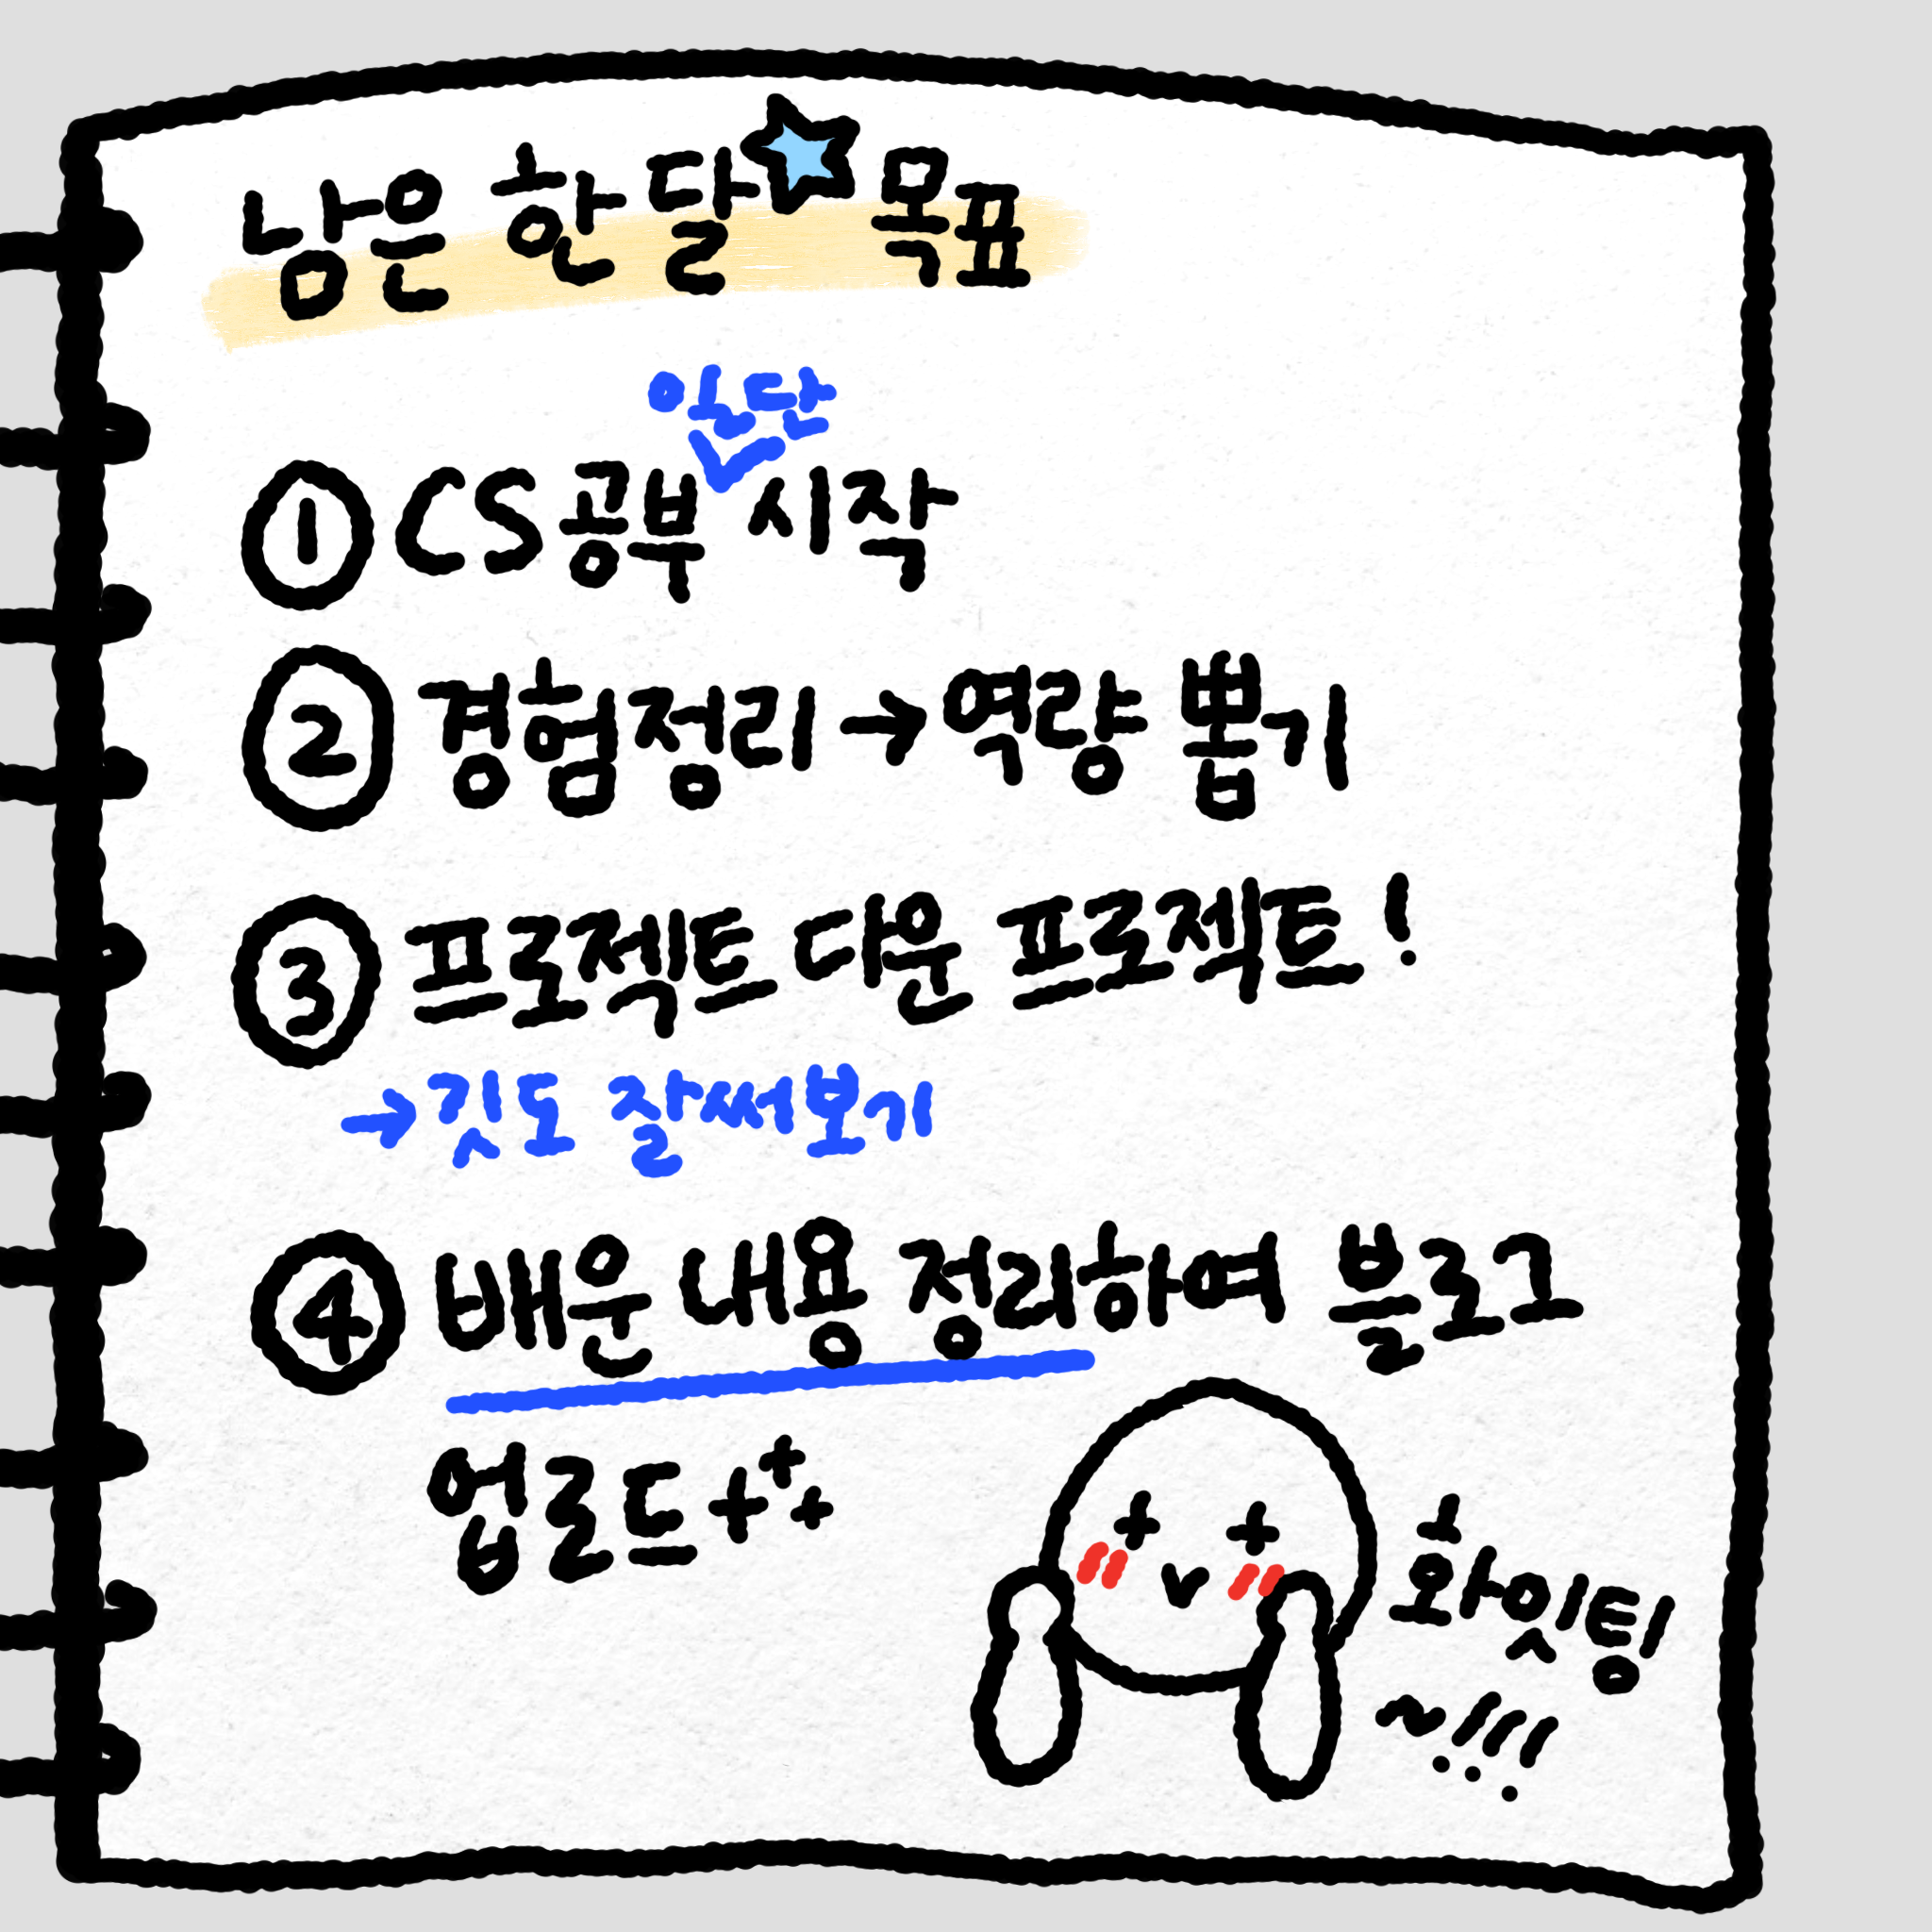 남은 한 달 목표
일단
① CS공부 시작
② 경험정리 → 역량 뽑기
③ 프로젝트 다운 프로젝트!
→ 깃도 잘써보기
④ 배운 내용 정리하여 블로그
업로드
화잇팅
~!!!